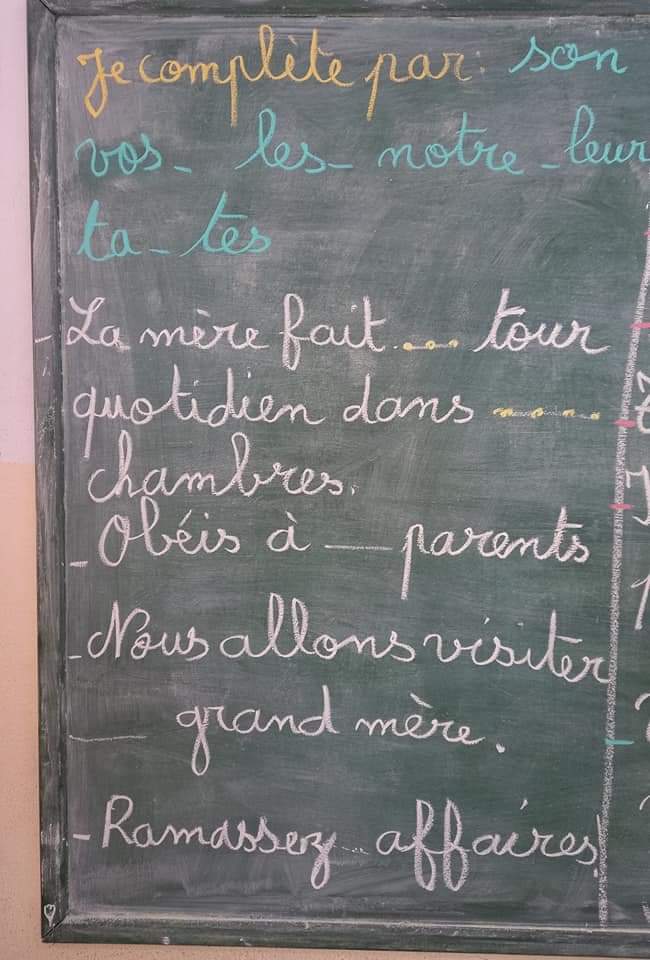 Je complète par: son
vos - les - notre - leur
ta - tes
- La mère fait .... tour
quotidien dans ........
chambres.
- Obéis à ___ parents
- Nous allons visiter
___ grand mère.
- Ramassez ... affaires!